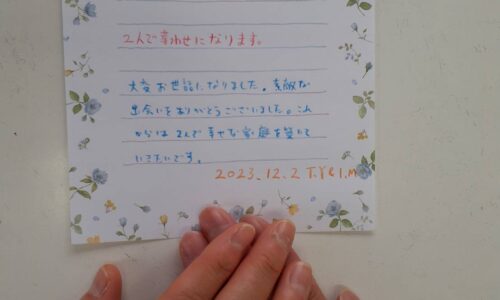 2人で幸わせになります。
大変お世話になりました。素敵な
出会いをありがとうございました。これ
からは2人で幸せな家庭を築いて
いきたいです。
2023.12.2 T.Y & I.M